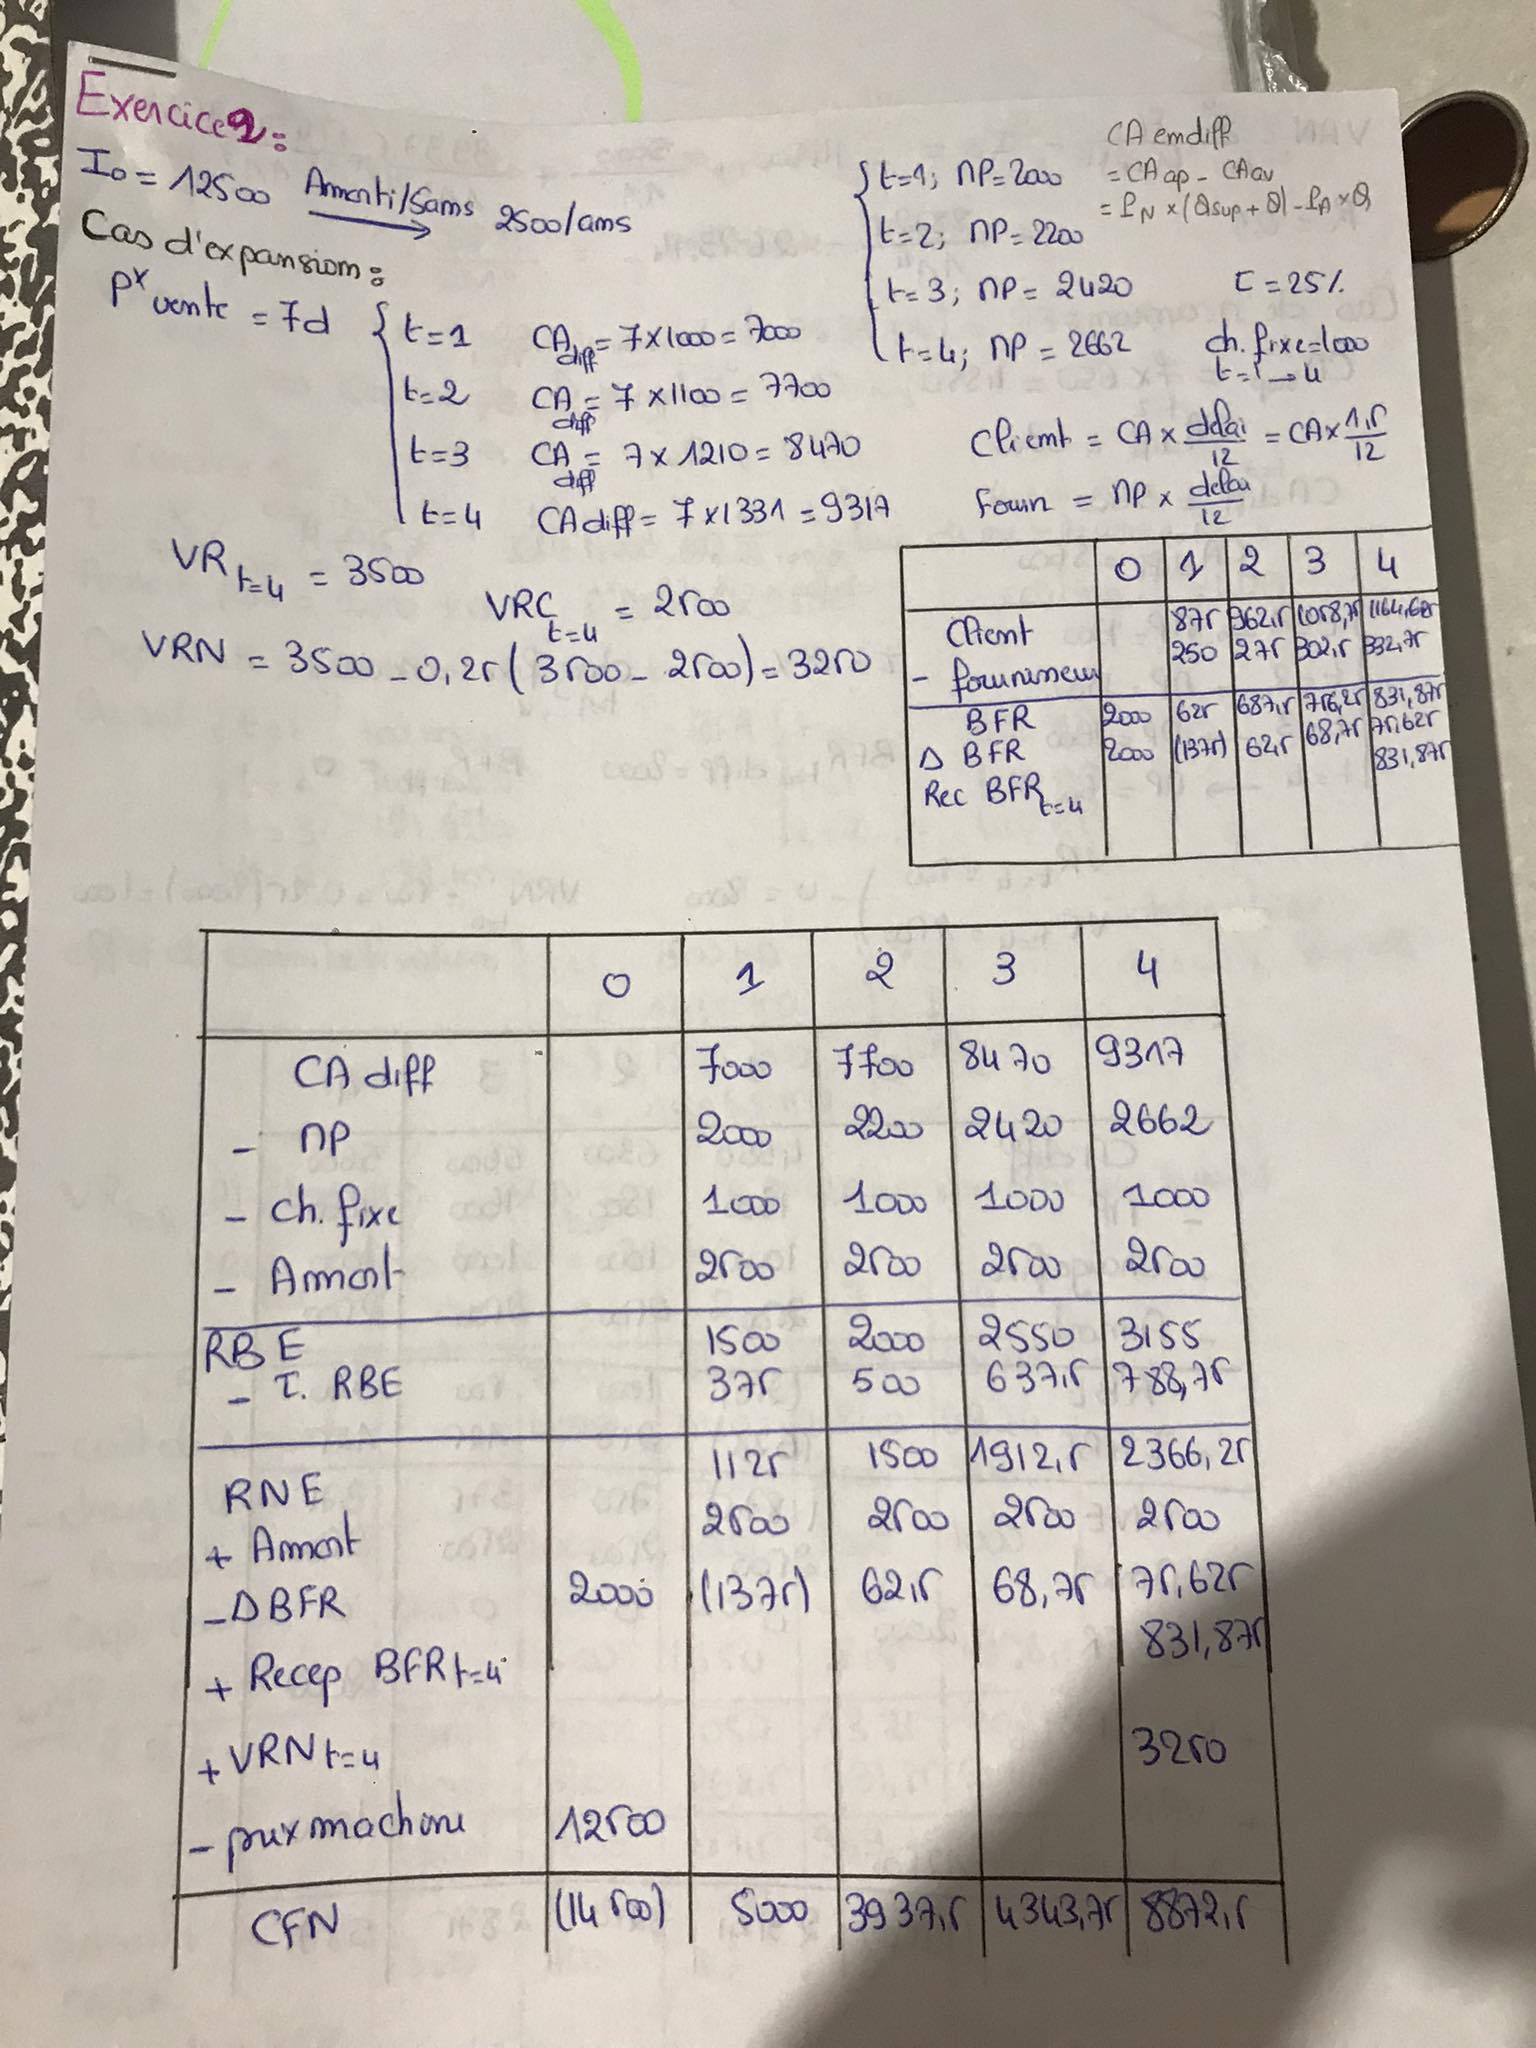 Exercice 2 :
I0 = 12500 Amorti/5ans 2500/ans
Cas d'expansion :
Px vente = 7d
t=1 CA diff = 7x1000 = 7000
t=2 CA diff = 7x1100 = 7700
t=3 CA diff = 7x1210 = 8470
t=4 CA diff = 7x1331 = 9317
t=1; MP=2000
t=2; MP=2200
t=3; MP=2420
t=4; MP=2662
CA en diff
= CA ap - CA av
= PN x (Qsup + Q) - PA x Q
τ = 25%
ch. fixe = 1000
t=1 → 4
Client = CA x delai/12 = CA x 1,5/12
Fourn = MP x delai/12
VR t=4 = 3500
VRC t=4 = 2500
VRN = 3500 - 0,25 (3500 - 2500) = 3250
0 1 2 3 4
Client 875 962,5 1058,75 1164,625
- fournisseur 250 275 302,5 332,75
BFR 2000 625 687,5 756,25 831,875
Δ BFR 2000 (1375) 62,5 68,75 75,625
Rec BFR t=4 831,875
0 1 2 3 4
CA diff 7000 7700 8470 9317
- MP 2000 2200 2420 2662
- ch. fixe 1000 1000 1000 1000
- Amort 2500 2500 2500 2500
RBE 1500 2000 2550 3155
- τ. RBE 375 500 637,5 788,75
RNE 1125 1500 1912,5 2366,25
+ Amort 2500 2500 2500 2500
- Δ BFR 2000 (1375) 62,5 68,75 75,625
+ Recep BFR t=4 831,875
+ VRN t=4 3250
- prix machine 12500
CFN (14500) 5000 3937,5 4343,75 8872,5